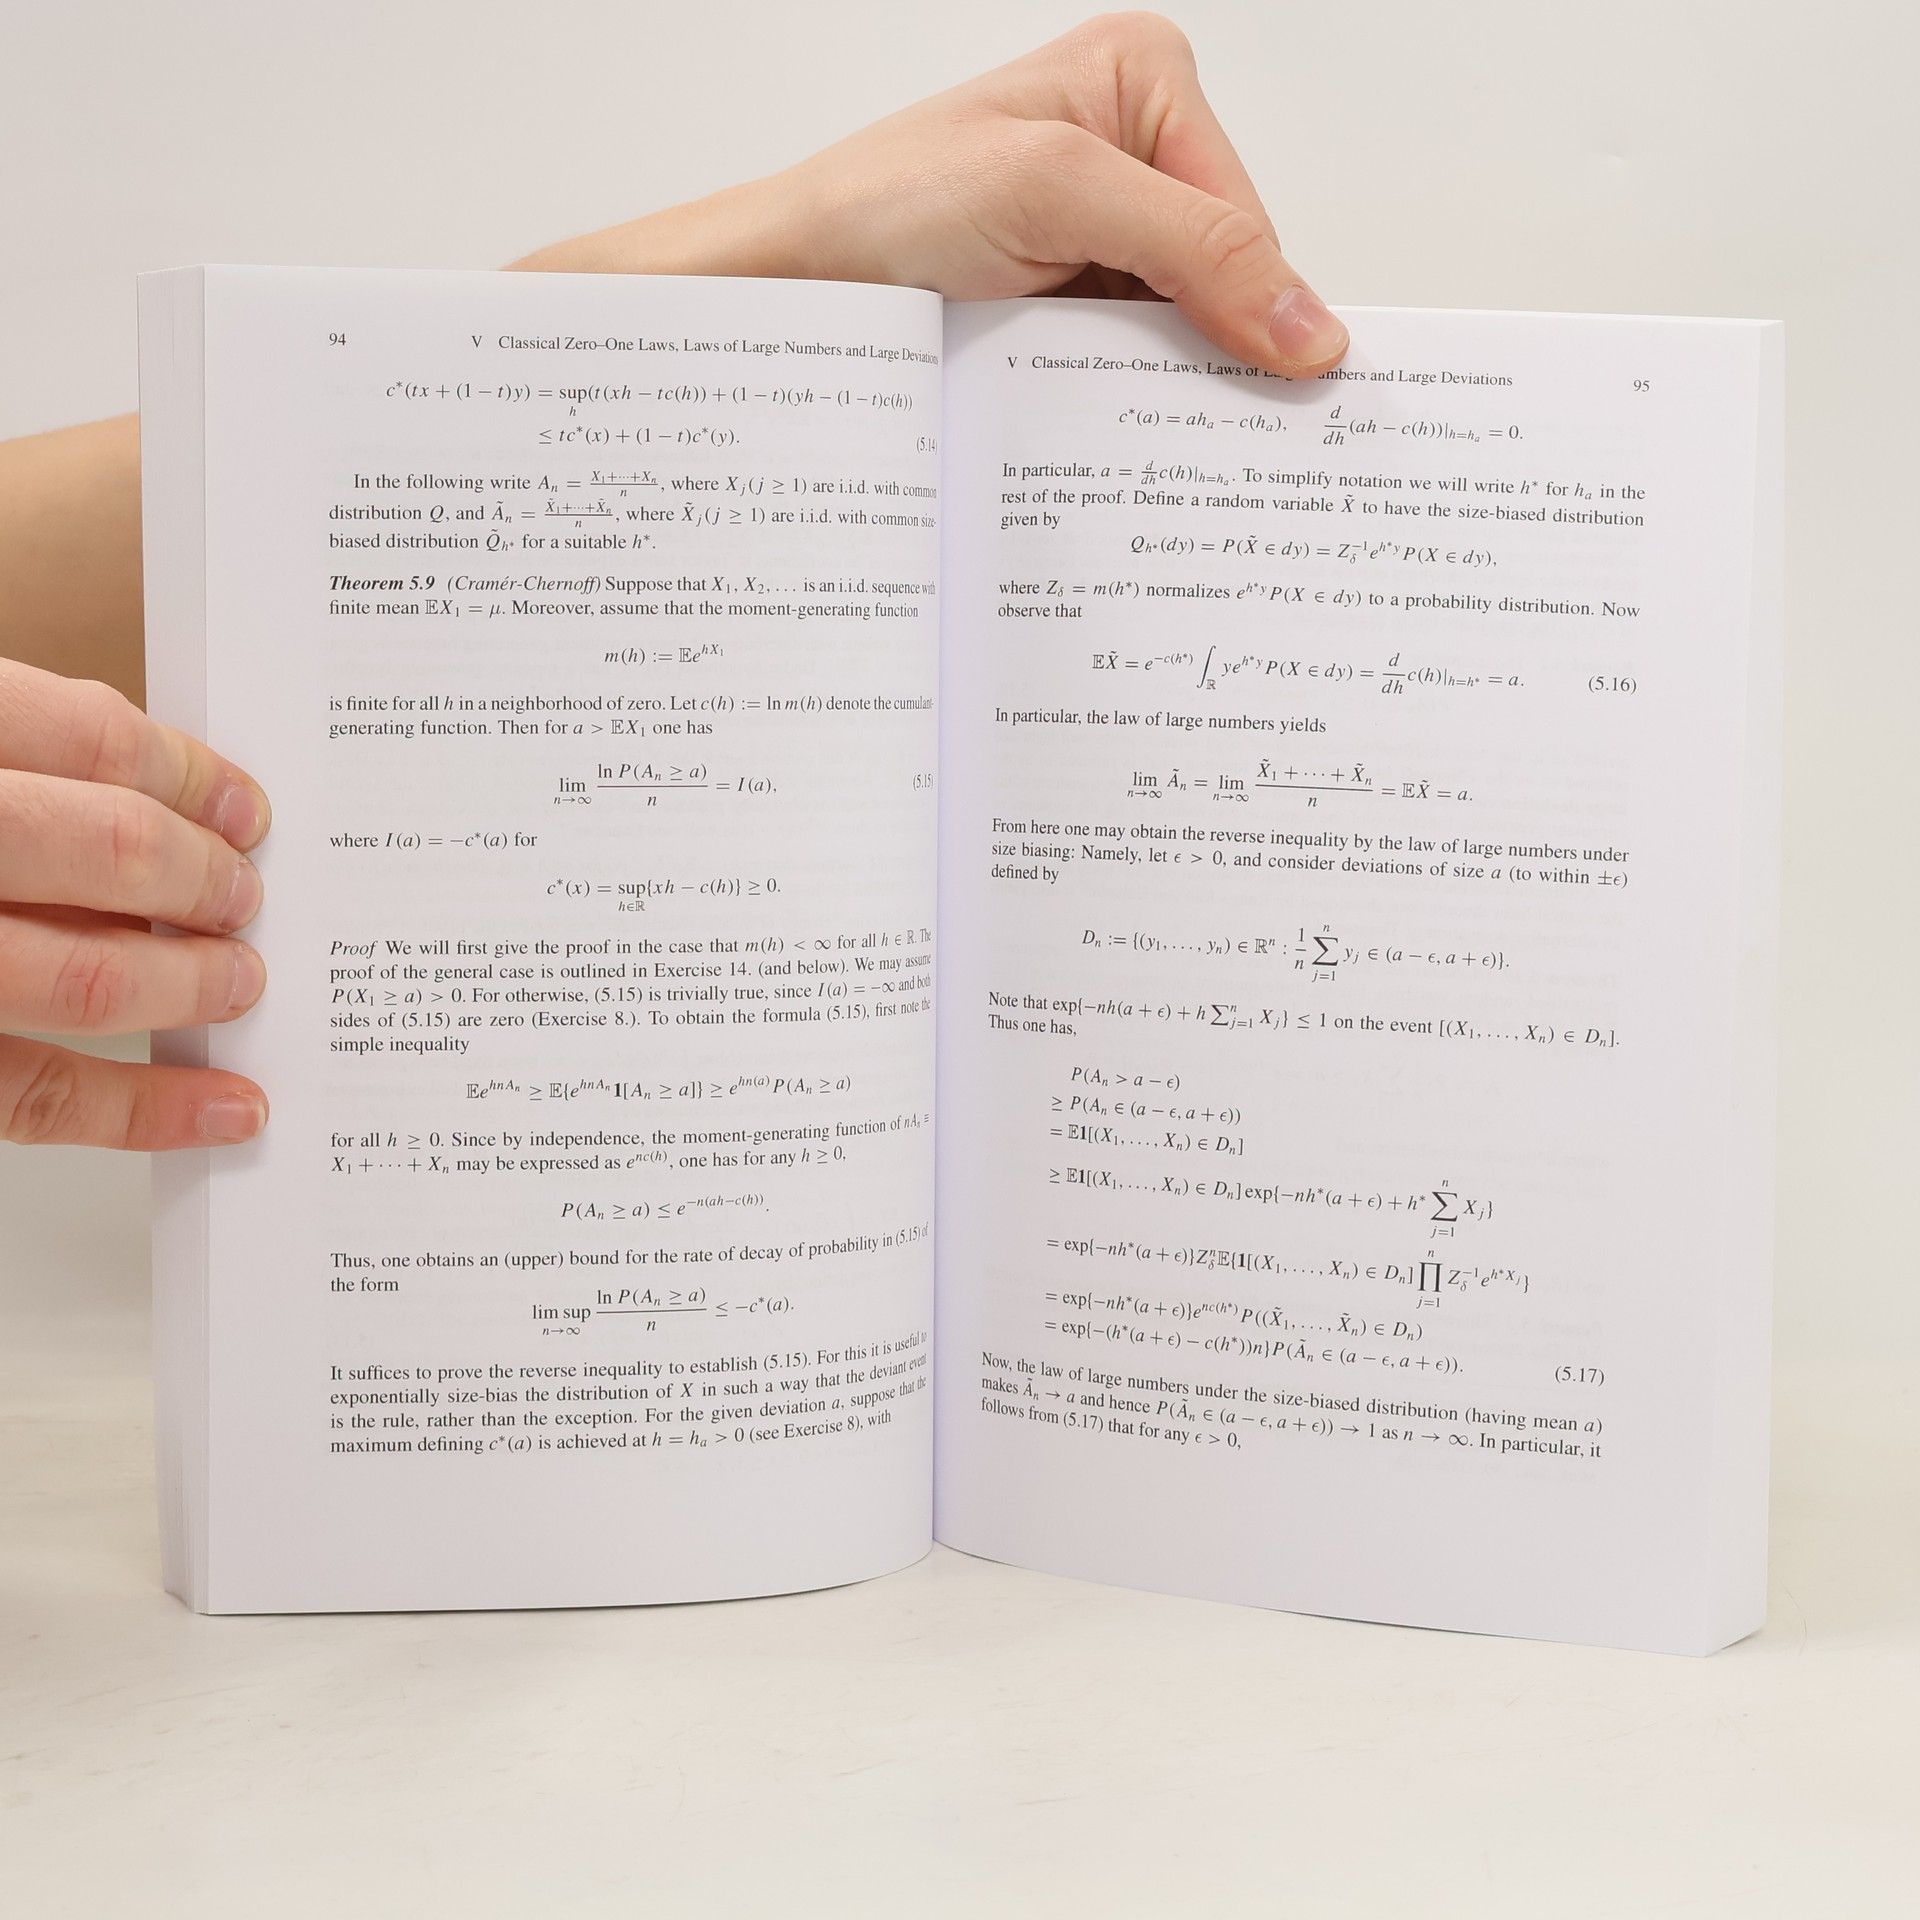 94 V Classical Zero–One Laws, Laws of Large Numbers and Large Deviations
c*(tx + (1 − t)y) = sup_h (t(xh − tc(h)) + (1 − t)(yh − (1 − t)c(h))
≤ tc*(x) + (1 − t)c*(y). (5.14)
In the following write Aₙ = (X₁+···+Xₙ)/n, where Xⱼ(j ≥ 1) are i.i.d. with common
distribution Q, and Ãₙ = (X̃₁+···+X̃ₙ)/n, where X̃ⱼ(j ≥ 1) are i.i.d. with common size-
biased distribution Q̃_{h*} for a suitable h*.
Theorem 5.9 (Cramér-Chernoff) Suppose that X₁, X₂, . . . is an i.i.d. sequence with
finite mean 𝔼X₁ = μ. Moreover, assume that the moment-generating function
m(h) := 𝔼e^{hX₁}
is finite for all h in a neighborhood of zero. Let c(h) := ln m(h) denote the cumulant-
generating function. Then for a > 𝔼X₁ one has
lim_{n→∞} ln P(Aₙ ≥ a)/n = I(a), (5.15)
where I(a) = −c*(a) for
c*(x) = sup_{h∈ℝ}{xh − c(h)} ≥ 0.
Proof We will first give the proof in the case that m(h) < ∞ for all h ∈ ℝ. The
proof of the general case is outlined in Exercise 14. (and below). We may assume
P(X₁ ≥ a) > 0. For otherwise, (5.15) is trivially true, since I(a) = −∞ and both
sides of (5.15) are zero (Exercise 8.). To obtain the formula (5.15), first note the
simple inequality
𝔼e^{hnAₙ} ≥ 𝔼{e^{hnAₙ}1[Aₙ ≥ a]} ≥ e^{hn(a)}P(Aₙ ≥ a)
for all h ≥ 0. Since by independence, the moment-generating function of nAₙ ≡
X₁ + ··· + Xₙ may be expressed as e^{nc(h)}, one has for any h ≥ 0,
P(Aₙ ≥ a) ≤ e^{−n(ah−c(h))}.
Thus, one obtains an (upper) bound for the rate of decay of probability in (5.15) of
the form
lim sup_{n→∞} ln P(Aₙ ≥ a)/n ≤ −c*(a).
It suffices to prove the reverse inequality to establish (5.15). For this it is useful to
exponentially size-bias the distribution of X in such a way that the deviant event
is the rule, rather than the exception. For the given deviation a, suppose that the
maximum defining c*(a) is achieved at h = hₐ > 0 (see Exercise 8), with
V Classical Zero–One Laws, Laws of mbers and Large Deviations 95
c*(a) = ahₐ − c(hₐ), d/dh (ah − c(h))|_{h=hₐ} = 0.
In particular, a = d/dh c(h)|_{h=hₐ}. To simplify notation we will write h* for hₐ in the
rest of the proof. Define a random variable X̃ to have the size-biased distribution
given by
Q_{h*}(dy) = P(X̃ ∈ dy) = Z_δ^{−1}e^{h*y}P(X ∈ dy),
where Z_δ = m(h*) normalizes e^{h*y}P(X ∈ dy) to a probability distribution. Now
observe that
𝔼X̃ = e^{−c(h*)} ∫_ℝ ye^{h*y}P(X ∈ dy) = d/dh c(h)|_{h=h*} = a. (5.16)
In particular, the law of large numbers yields
lim_{n→∞} Ãₙ = lim_{n→∞} (X̃₁ + ··· + X̃ₙ)/n = 𝔼X̃ = a.
From here one may obtain the reverse inequality by the law of large numbers under
size biasing: Namely, let ϵ > 0, and consider deviations of size a (to within ±ϵ)
defined by
Dₙ := {(y₁, . . . , yₙ) ∈ ℝⁿ : 1/n ∑_{j=1}^{n} yⱼ ∈ (a − ϵ, a + ϵ)}.
Note that exp{−nh(a + ϵ) + h ∑_{j=1}^{n} Xⱼ} ≤ 1 on the event [(X₁, . . . , Xₙ) ∈ Dₙ].
Thus one has,
P(Aₙ > a − ϵ)
≥ P(Aₙ ∈ (a − ϵ, a + ϵ))
= 𝔼1[(X₁, . . . , Xₙ) ∈ Dₙ]
≥ 𝔼1[(X₁, . . . , Xₙ) ∈ Dₙ] exp{−nh*(a + ϵ) + h* ∑_{j=1}^{n} Xⱼ}
= exp{−nh*(a + ϵ)}Z_δ^n 𝔼{1[(X₁, . . . , Xₙ) ∈ Dₙ] ∏_{j=1}^{n} Z_δ^{−1}e^{h*Xⱼ}}
= exp{−nh*(a + ϵ)}e^{nc(h*)}P((X̃₁, . . . , X̃ₙ) ∈ Dₙ)
= exp{−(h*(a + ϵ) − c(h*))n}P(Ãₙ ∈ (a − ϵ, a + ϵ)). (5.17)
Now, the law of large numbers under the size-biased distribution (having mean a)
makes Ãₙ → a and hence P(Ãₙ ∈ (a − ϵ, a + ϵ)) → 1 as n → ∞. In particular, it
follows from (5.17) that for any ϵ > 0,